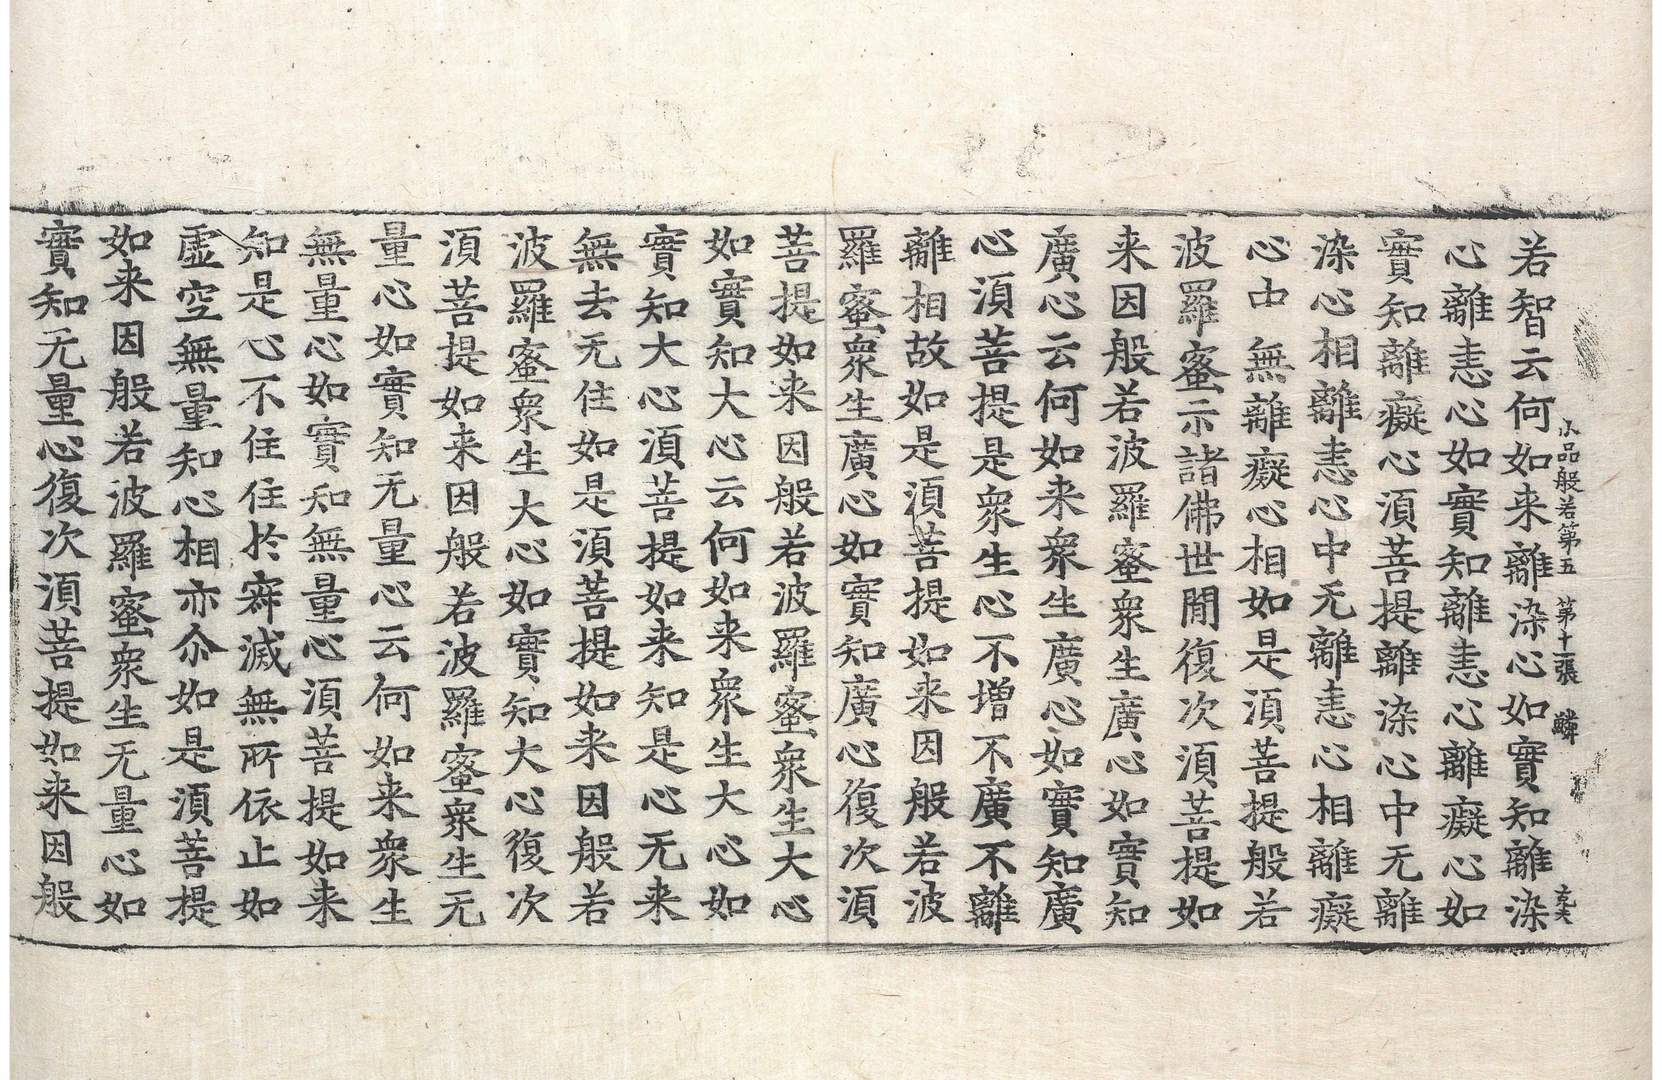 小品般若第五 第十一張 鱗 克夫
若智云何如来離染心如實知離染
心離恚心如實知離恚心離癡心如
實知離癡心須菩提離染心中无離
染心相離恚心中无離恚心相離癡
心中無離癡心相如是須菩提般若
波羅蜜示諸佛世間復次須菩提如
来因般若波羅蜜衆生廣心如實知
廣心云何如来衆生廣心如實知廣
心須菩提是衆生心不增不廣不離
離相故如是須菩提如来因般若波
羅蜜衆生廣心如實知廣心復次須
菩提如来因般若波羅蜜衆生大心
如實知大心云何如来衆生大心如
實知大心須菩提如来知是心无来
無去无住如是須菩提如来因般若
波羅蜜衆生大心如實知大心復次
須菩提如来因般若波羅蜜衆生无
量心如實知无量心云何如来衆生
無量心如實知無量心須菩提如来
知是心不住住於寂滅無所依止如
虚空無量知心相亦尒如是須菩提
如来因般若波羅蜜衆生无量心如
實知无量心復次須菩提如来因般